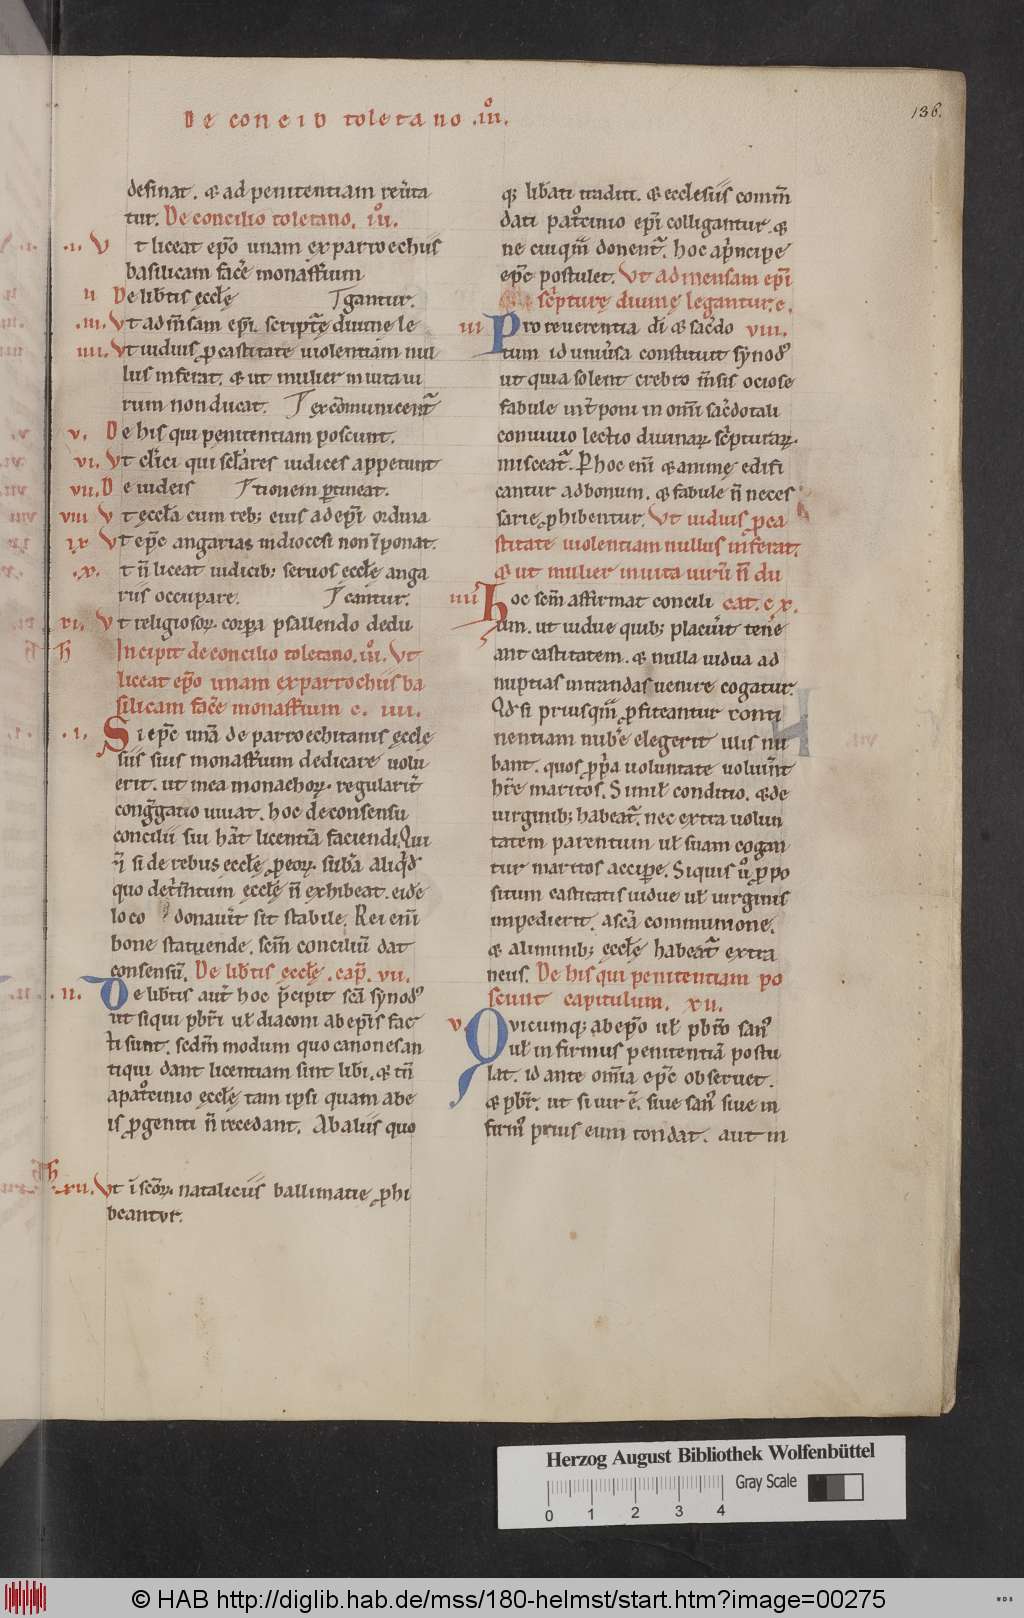 De concilio toletano .iii͛.
136.
desinat. & ad penitentiam reu̾ta
tur. De concilio toletano. iii͛.
.i. Vt liceat ep̅o unam ex parroechiis
basilicam fac̾e monast̅ium
ii De lib̾tis eccl̅ę
gantur.
.iii. Vt ad m̅sam ep̅i. script̾ę diuinę le
iiii. Vt uiduis ꝓ castitate uiolentiam nul
lus inferat. & ut mulier inuita ui
rum non ducat.
exc̅omunicent᷑
v. De his qui penitentiam poscunt.
vi. Vt cl̅ici qui sc̅lares iudices appetunt
vii. De iudeis
tionem ꝑtineat.
viii Vt eccl̅a cum reb; eius ad ep̅i ordina
ix Vt ep̅c angarias in diocesi non i̅ponat.
.x. t n̅ liceat iudicib; seruos eccl̅e anga
rus occupare.
cantur.
xi. Vt religiosoꝝ corꝑa psallendo dedu
Incipit de concilio toletano. iii͛. Vt
liceat ep̅o unam ex parrochiis ba
silicam fac̾e monast̅ium c. iiii.
.i. Si ep̅c una̅ de parroechitanis ęccle
siis suis monast̅ium dedicare uolu
erit. ut in ea monachoꝝ regularit̾
cong̾gatio uiuat. hoc de consensu
concilii sui hab̾at licentia̅ faciendi. Qui
n̅ si de rebus eccl̅e ꝓ eoꝝ sub̅a aliq̾d
quo det̾m̅tum ęccl̅ę n̅ exhibeat. eide
loco donau̾it sit stabile. Rei eni̅
bone statuende. sc̅m conciliu̅ dat
consensu̅. De lib̾tis eccl̅ę. cap̅. vii.
.ii. De lib̾tis aut̅ hoc p̅cipit sc̅a synod᷒
ut siqui pb̅ri ul̅ diaconi ab ep̅is fac
ti sunt. sc̅dm modum quo canones an
tiqui dant licentiam sint lib̾i. & tn̅
a pat̾cinio ęccl̅ę tam ipsi quam ab e
is ꝓgeniti n̅ recedant. Ab aliis quo
xii. Vt i̅ sc̅oꝝ nataliciis ballimatie ꝓhi
beantur.
q; lib̾ati traditi. & ecclesiis comm̅
dati pat̾cinio ep̅i colligantur. &
ne cuiqua̅ donent᷑. hoc a p̾ncipe
ep̅c postulet. Vt ad mensam ep̅i
sc̾pturę diuinę legantur. c.
iii Pro reuerentia di̅ & sac̾do viii.
tum id uniu̾sa constituit synod᷒
ut quia solent crebro m̅sis ociose
fabule int̾poni in om̅i sac̾dotali
conuiuio lectio diuinaꝝ sc̾pturaꝝ
misceat᷑. P hoc eni̅ & animę edifi
cantur ad bonum. & fabule n̅ neces
sarie ꝓhibentur. Vt uiduis ꝓ ca
stitate uiolentiam nullus inferat.
& ut mulier inuita uiru̅ n̅ du
iiii Hoc sc̅m affirmat concili cat. c x.
um. ut uidue quib; placu̾it ten̾e
ant castitatem. & nulla uidua ad
nuptias intrandas uenire cogatur.
Qd̾ si priusqua̅ ꝓfiteantur conti
nentiam nub̾e elegerit illis nu
bant. quos ꝓp̾a uoluntate uolu̾int
hr̅e maritos. Simil̅ conditio. & de
uirginib; habeat᷑. nec extra uolun
tatem parentum ul̅ suam cogan
tur maritos accipe̾. Siquis u̾o ꝓpo
situm castitatis uidue ul̅ uirginis
impedierit. a sc̅a communione.
& a liminib; eccl̅ę habeat᷑ extra
neus. De his qui penitentiam po
scunt capitulum. xii.
v. Quicumq; ab ep̅o ul̅ pb̅ro san᷒
ul̅ infirmus penitentia̅ postu
lat. id ante om̅ia ep̅c obseruet.
& pb̅r. ut si uir e̅. siue san᷒ siue in
firm᷒ prius eum tondat. aut in
Herzog August Bibliothek Wolfenbüttel
Gray Scale
0 1 2 3 4
© HAB http://diglib.hab.de/mss/180-helmst/start.htm?image=00275